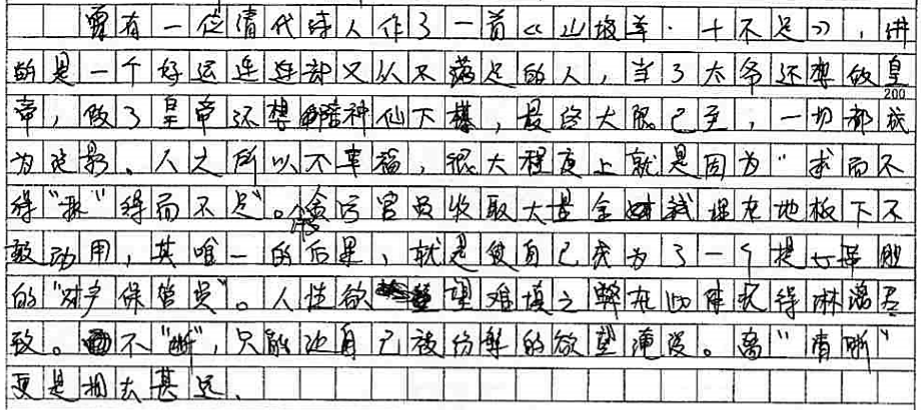 曾有一位清代诗人作了一首《山坡羊·十不足》，讲
的是一个好运连连却又从不满足的人，当了大爷还想做皇
200
帝，做了皇帝还想和神仙下棋，最终大限已至，一切都成
为泡影。人之所以不幸福，很大程度上就是因为"求而不
得"和"得而不足"。贪污官员收取大量金钱埋在地板下不
敢动用，其唯一的后果，就是使自己成为了一个提心吊胆
的"财产保管员"。人性欲望难填之弊在此体现得淋漓尽
致。不"断"，只能让自己被纷繁的欲望淹没。离"清晰"
更是相去甚远。